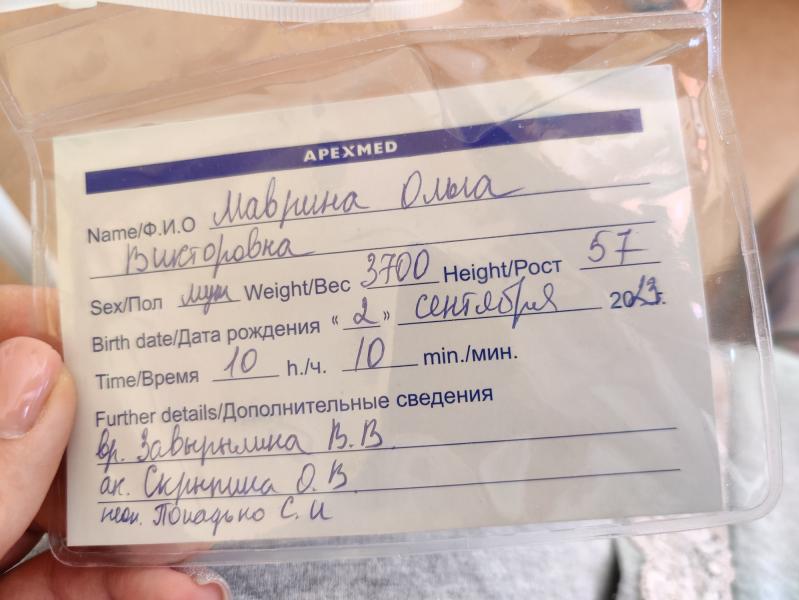 APEXMED
Name/Ф.И.О Маврина Ольга
Викторовна
Sex/Пол муж Weight/Вес 3700 Height/Рост 57
Birth date/Дата рождения «2» сентября 2023г.
Time/Время 10 h./ч. 10 min./мин.
Further details/Дополнительные сведения
вр. Завырылина В.В
ак. Скрыпина О.В
неон. С.И